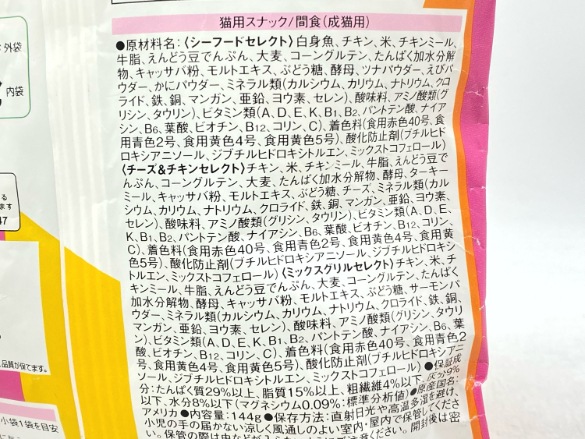 猫用スナック/間食(成猫用)
外袋
内袋
●原材料名:〈シーフードセレクト〉白身魚、チキン、米、チキンミール、
牛脂、えんどう豆でんぷん、大麦、コーングルテン、たんぱく加水分解
物、キャッサバ粉、モルトエキス、ぶどう糖、酵母、ツナパウダー、えびパ
ウダー、かにパウダー、ミネラル類(カルシウム、カリウム、ナトリウム、クロ
ライド、鉄、銅、マンガン、亜鉛、ヨウ素、セレン)、酸味料、アミノ酸類(グ
リシン、タウリン)、ビタミン類(A、D、E、K、B1、B2、パントテン酸、ナイア
シン、B6、葉酸、ビオチン、B12、コリン、C)、着色料(食用赤色40号、食用
青色2号、食用黄色4号、食用黄色5号)、酸化防止剤(ブチルヒド
ロキシアニソール、ジブチルヒドロキシトルエン、ミックストコフェロール)
〈チーズ&チキンセレクト〉チキン、米、チキンミール、牛脂、えんどう豆で
んぷん、コーングルテン、大麦、たんぱく加水分解物、酵母、ターキー
ミール、キャッサバ粉、モルトエキス、ぶどう糖、チーズ、ミネラル類(カル
シウム、カリウム、ナトリウム、クロライド、鉄、銅、マンガン、亜鉛、ヨウ素、
セレン)、酸味料、アミノ酸類(グリシン、タウリン)、ビタミン類(A、D、E、
K、B1、B2、パントテン酸、ナイアシン、B6、葉酸、ビオチン、B12、コリン、
C)、着色料(食用赤色40号、食用青色2号、食用黄色4号、食用黄
色5号)、酸化防止剤(ブチルヒドロキシアニソール、ジブチルヒドロキシ
トルエン、ミックストコフェロール)〈ミックスグリルセレクト〉チキン、米、チ
キンミール、牛脂、えんどう豆でんぷん、大麦、コーングルテン、たんぱく
加水分解物、酵母、キャッサバ粉、モルトエキス、ぶどう糖、サーモンパ
ウダー、ミネラル類(カルシウム、カリウム、ナトリウム、クロライド、鉄、銅、
マンガン、亜鉛、ヨウ素、セレン)、酸味料、アミノ酸類(グリシン、タウリ
ン)、ビタミン類(A、D、E、K、B1、B2、パントテン酸、ナイアシン、B6、葉
酸、ビオチン、B12、コリン、C)、着色料(食用赤色40号、食用青色2
号、食用黄色4号、食用黄色5号)、酸化防止剤(ブチルヒドロキシアニ
ソール、ジブチルヒドロキシトルエン、ミックストコフェロール)●保証成
分:たんぱく質29%以上、脂質15%以上、粗繊維4%以下、灰分9%
以下、水分8%以下(マグネシウム0.09%:標準分析値)●原産国名:
アメリカ●内容量:144g●保存方法:直射日光や高温多湿を避け、
小児の手の届かない涼しく風通しのよい室内・屋内で保管してくださ
い。保管の際は
ください。開封後は密
る
ます
47
品質が保てます。
小袋1袋を目安